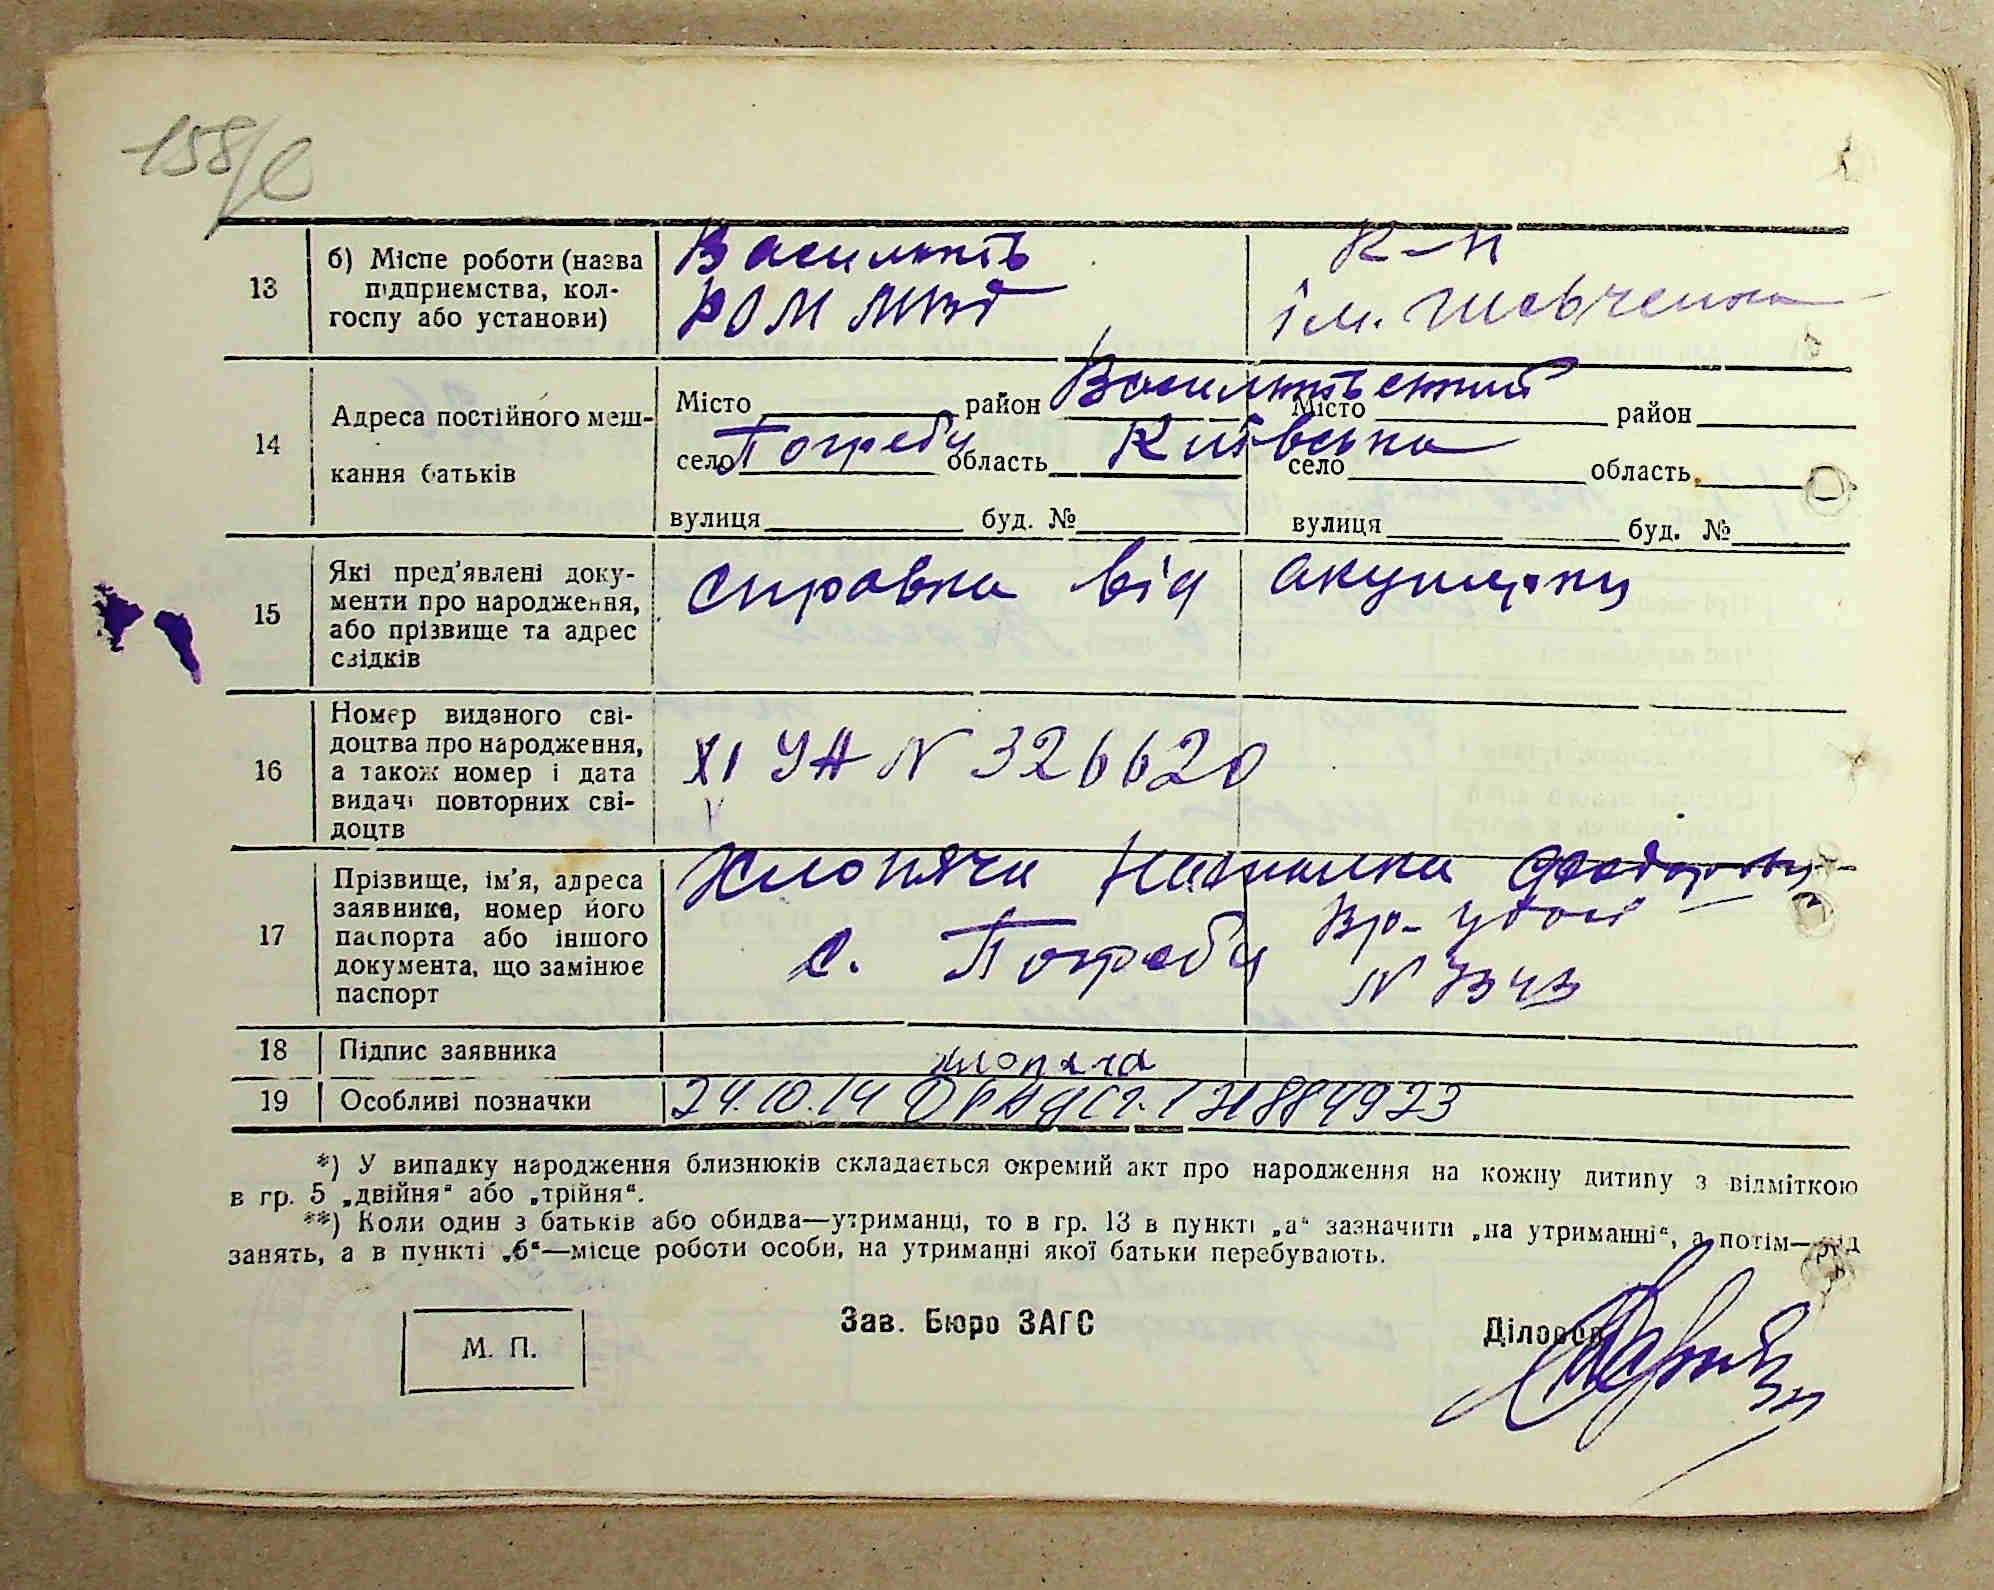 158
13
б) Місце роботи (назва
підприємства, кол-
госпу або установи)
Васильків
РОМ
К-п
ім. Шевченка
14
Адреса постійного меш-
кання батьків
Місто район Васильківський
село Погреби область Київська
вулиця буд. №
Місто район
село область
вулиця буд. №
15
Які пред'явлені доку-
менти про народження,
або прізвище та адрес
свідків
справка від акушерки
16
Номер виданого сві-
доцтва про народження,
а також номер і дата
видачі повторних сві-
доцтв
XI УА N 326620
17
Прізвище, ім'я, адреса
заявника, номер його
паспорта або іншого
документа, що замінює
паспорт
Хлопяча Наталка Федоровна
с. Погреби
Вр- удост
N
18
Підпис заявника
хлопяча
19
Особливі позначки
24.10.14
*) У випадку народження близнюків складається окремий акт про народження на кожну дитину з відміткою
в гр. 5 „двійня“ або „трійня“.
**) Коли один з батьків або обидва—утриманці, то в гр. 13 в пункті „а“ зазначити „на утриманні“, а потім—рід
занять, а в пункті „б“—місце роботи особи, на утриманні якої батьки перебувають.
М. П.
Зав. Бюро ЗАГС
Діловод